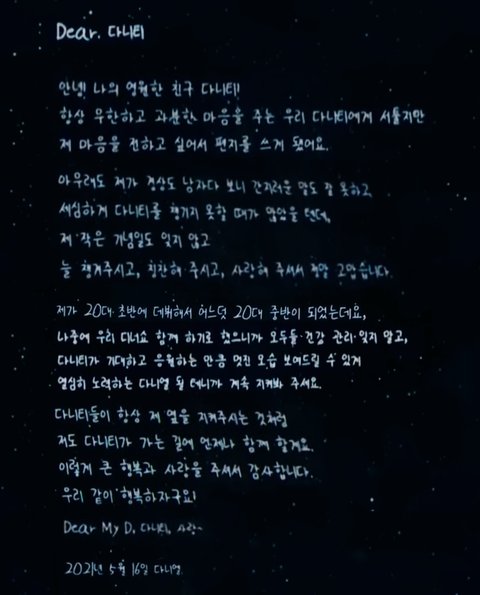 Dear. 다니티
안녕! 나의 영원한 친구 다니티!
항상 무한하고 과분한 마음을 주는 우리 다니티에게 서툴지만
제 마음을 전하고 싶어서 편지를 쓰게 됐어요.
아무래도 제가 경상도 남자다 보니 간지러운 말도 잘 못하고
세심하게 다니티를 챙기지 못할 때가 많았을 텐데,
제 작은 기념일도 잊지 않고
늘 챙겨주시고, 칭찬해 주시고, 사랑해 주셔서 정말 고맙습니다.
제가 20대 초반에 데뷔해서 어느덧 20대 중반이 되었는데요,
나중에 우리 디너쇼 함께 하기로 했으니까 모두들 건강 관리 잊지 말고,
다니티가 기대하고 응원하는 만큼 멋진 모습 보여드릴 수 있게
열심히 노력하는 다니엘 될 테니까 계속 지켜봐 주세요.
다니티들이 항상 제 옆을 지켜주시는 것처럼
저도 다니티가 가는 길에 언제나 함께 할게요.
이렇게 큰 행복과 사랑을 주셔서 감사합니다.
우리 같이 행복하자구요!
Dear My D. 다니티, 사랑~
2021년 5월 16일 다니엘